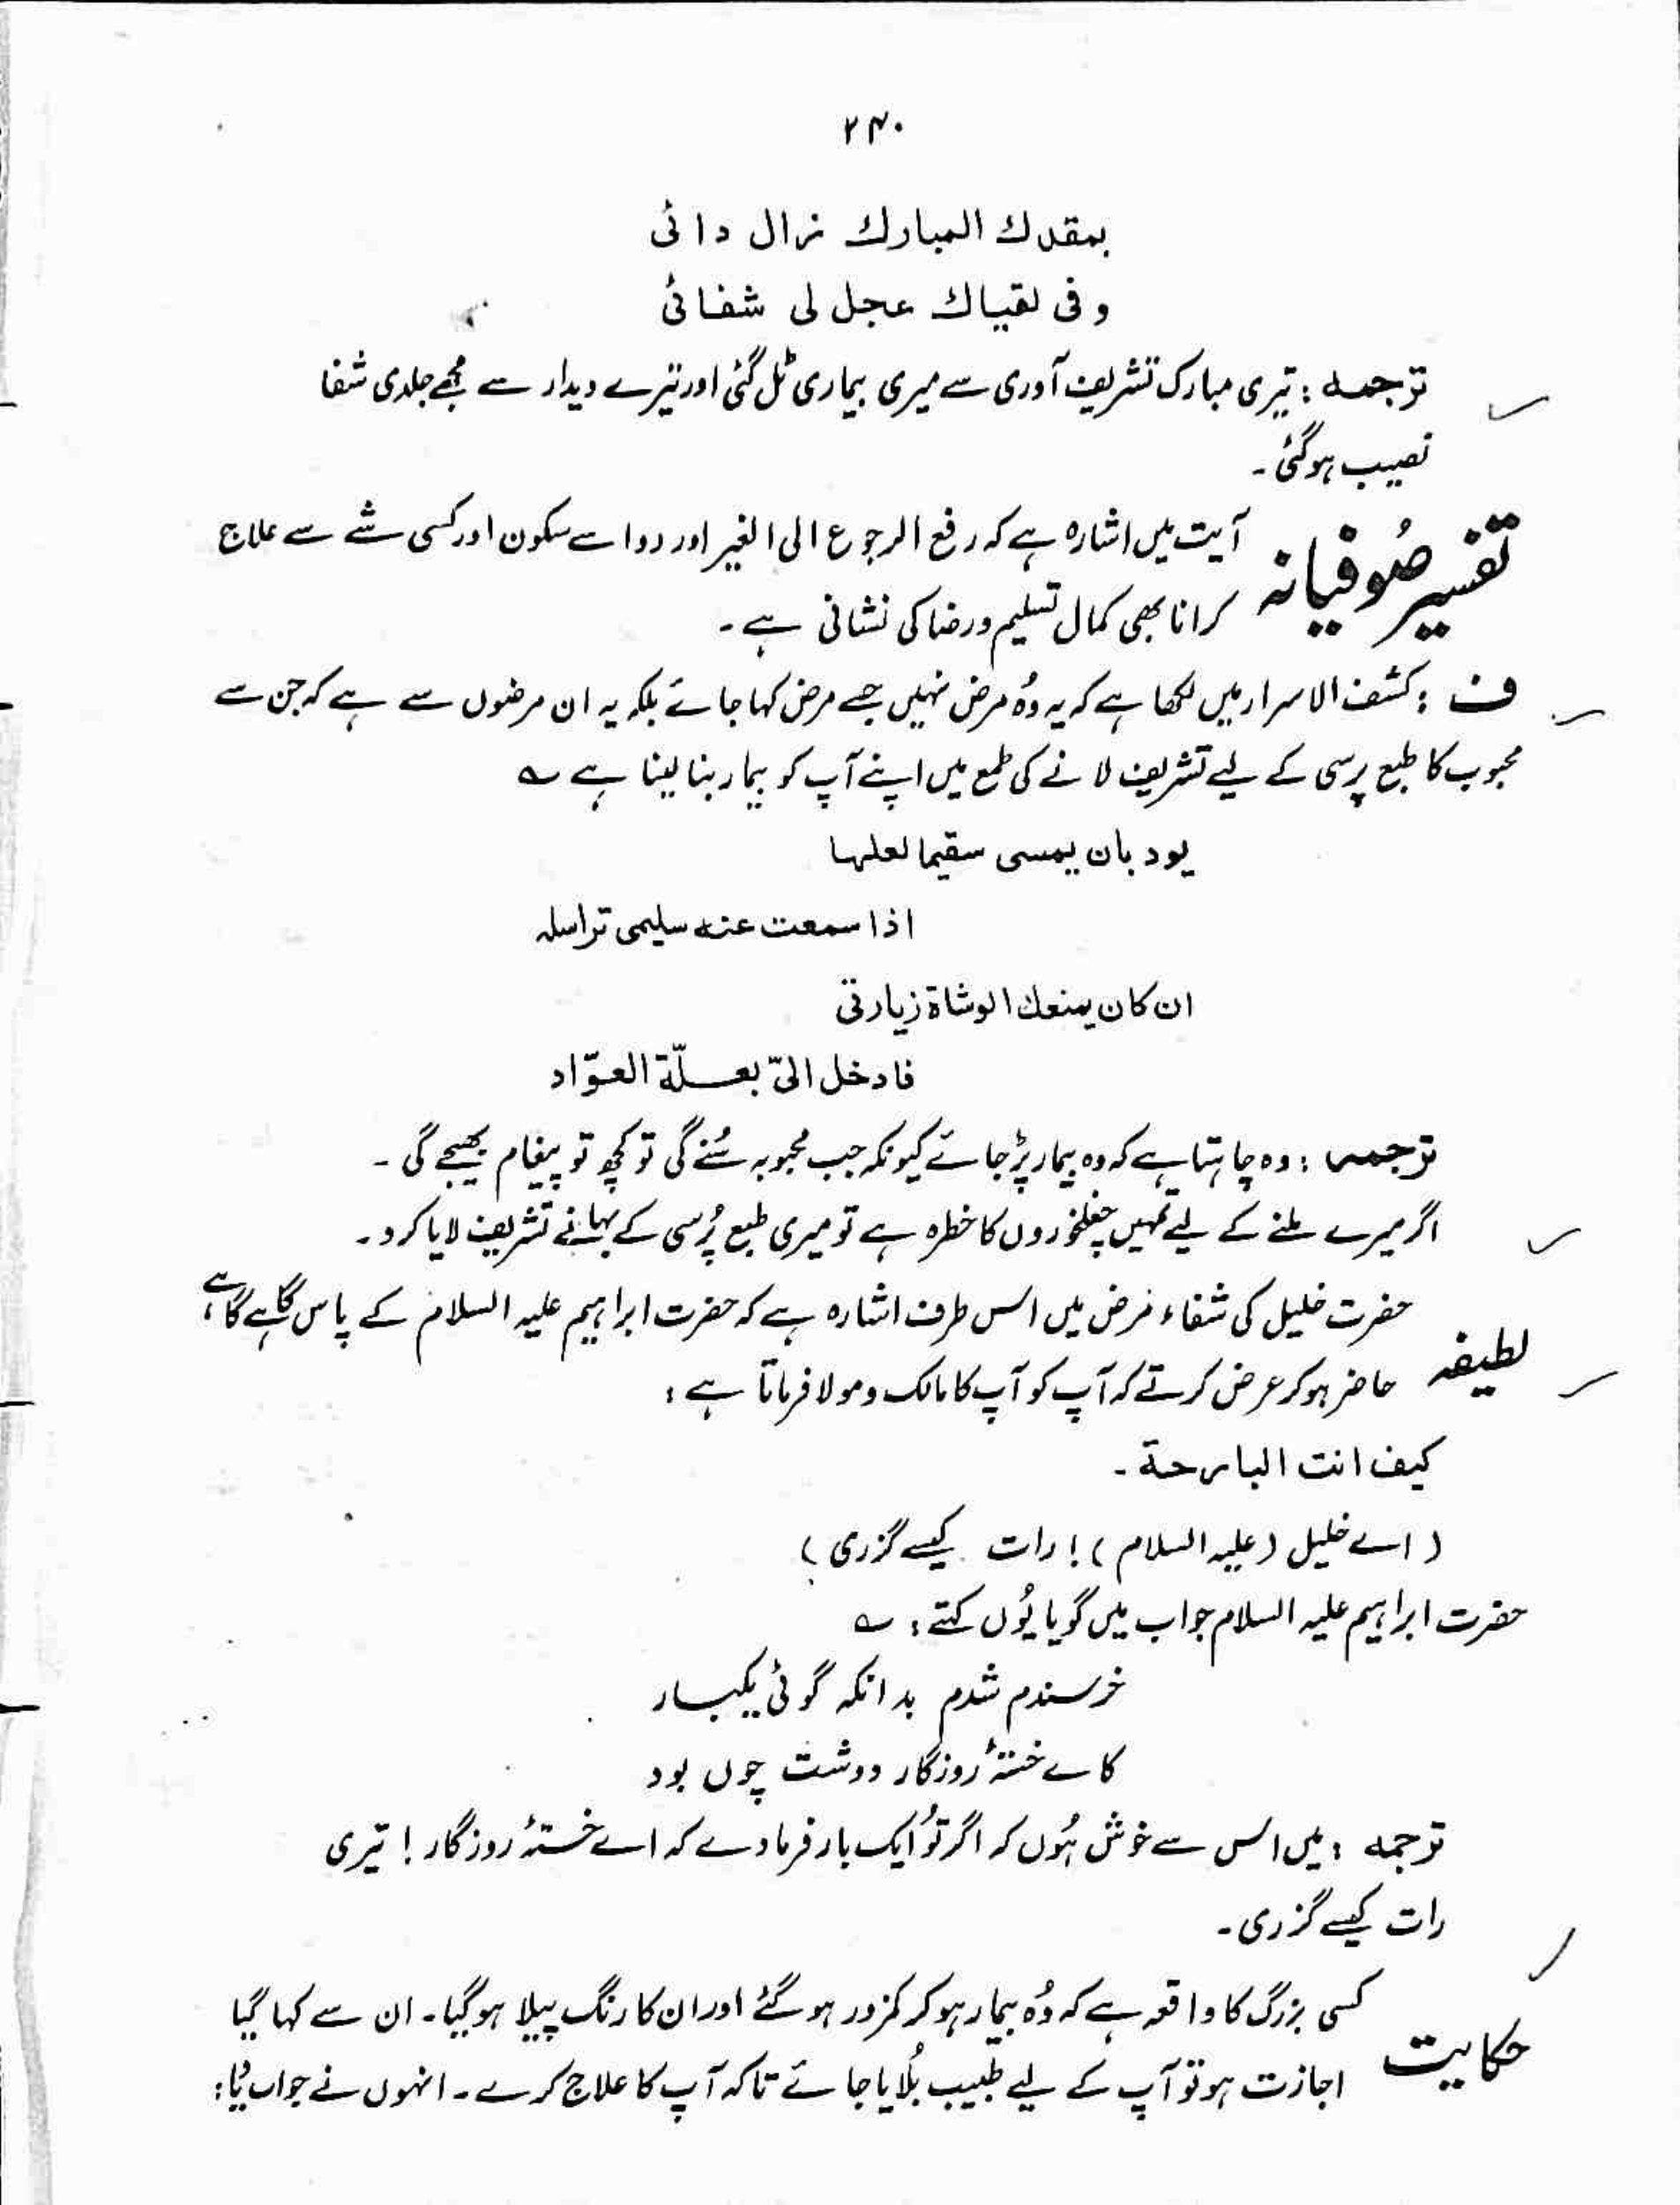 ۲۴۰
بمقدك المبارك زال دائی
وفی لقياك عجل لی شفائی
ترجمہ : تیری مبارک تشریف آوری سے میری بیماری ٹل گئی اور تیرے دیدار سے مجھے جلدی شفا
نصیب ہو گئی ۔
تفسیر صُوفیانہ آیت میں اشارہ ہے کہ رفع الرجوع الی الغیر اور دوا سے سکون اور کسی شے سے علاج
کرانا بھی کمال تسلیم و رضا کی نشانی ہے ۔
ف : کشف الاسرار میں لکھا ہے کہ یہ وُہ مرض نہیں جسے مرض کہا جائے بلکہ یہ ان مرضوں سے ہے کہ جن سے
محبوب کا طبع پرسی کے لیے تشریف لانے کی طمع میں اپنے آپ کو بیمار بنا لینا ہے ؎
یود بان یمسی سقیما لعلها
اذا سمعت عنه سلیمی تراسله
ان کان یمنعك الوشاة زیارتی
فادخل الیّ بعلّة العوّاد
ترجمہ : وہ چاہتا ہے کہ وہ بیمار پڑ جائے کیونکہ جب محبوبہ سُنے گی تو کچھ تو پیغام بھیجے گی ۔
اگر میرے ملنے کے لیے تمہیں چغلخوروں کا خطرہ ہے تو میری طبع پُرسی کے بہانے تشریف لایا کرو ۔
لطیفہ حضرت خلیل کی شفاء مرض میں اس طرف اشارہ ہے کہ حضرت ابراہیم علیہ السلام کے پاس گاہے گاہے
حاضر ہو کر عرض کرتے کہ آپ کو آپ کا مالک و مولا فرماتا ہے :
کیف انت البارحة ۔
( اے خلیل (علیہ السلام) ! رات کیسے گزری )
حضرت ابراہیم علیہ السلام جواب میں گویا یُوں کہتے : ؎
خرسندم شدم بدانکہ گوئی یکبار
کاے خستۂ روزگار دوشت چوں بود
ترجمہ : میں اس سے خوش ہُوں کہ اگر تُو ایک بار فرما دے کہ اے خستۂ روزگار ! تیری
رات کیسے گزری ۔
حکایت کسی بزرگ کا واقعہ ہے کہ وُہ بیمار ہو کر کمزور ہو گئے اور ان کا رنگ پیلا ہو گیا ۔ ان سے کہا گیا
اجازت ہو تو آپ کے لیے طبیب بُلایا جائے تاکہ آپ کا علاج کرے ۔ انہوں نے جواب دیا :